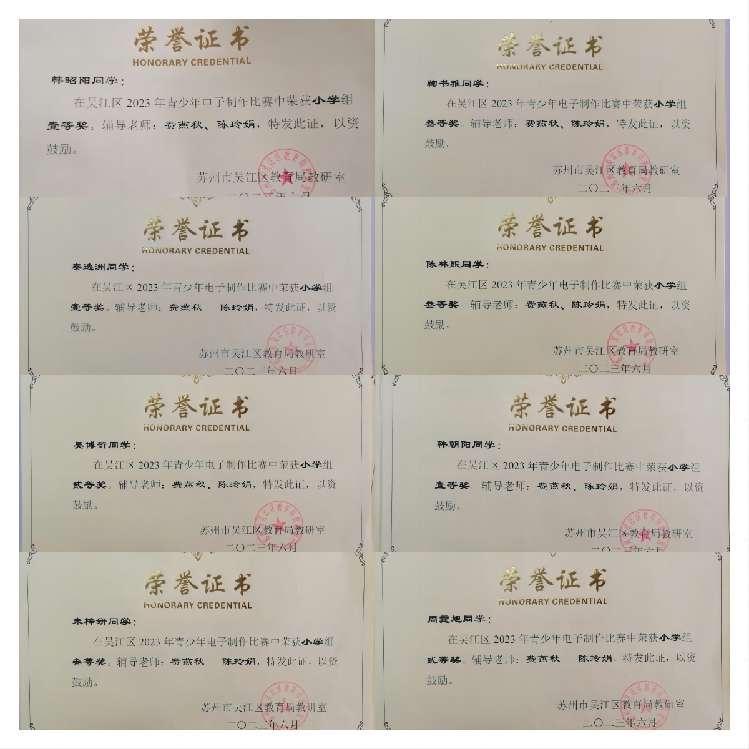 荣誉证书
HONORARY CREDENTIAL
韩昭阳同学：
在吴江区 2023 年青少年电子制作比赛中荣获小学组
壹等奖。辅导老师：费燕秋、陈玲娟，特发此证，以资
鼓励。
苏州市吴江区教育局教研室
二〇二三年六月
荣誉证书
HONORARY CREDENTIAL
书雅同学：
在吴江区 2023 年青少年电子制作比赛中荣获小学组
叁等奖。辅导老师：费燕秋、陈玲娟，特发此证，以资
鼓励。
苏州市吴江区教育局教研室
二〇二三年六月
荣誉证书
HONORARY CREDENTIAL
逸洲同学：
在吴江区 2023 年青少年电子制作比赛中荣获小学组
壹等奖。辅导老师：费燕秋 陈玲娟，特发此证，以资
鼓励。
苏州市吴江区教育局教研室
二〇二三年六月
荣誉证书
HONORARY CREDENTIAL
陈林熙同学：
在吴江区 2023 年青少年电子制作比赛中荣获小学组
叁等奖。辅导老师：费燕秋、陈玲娟，特发此证，以资
鼓励。
苏州市吴江区教育局教研室
二〇二三年六月
荣誉证书
HONORARY CREDENTIAL
吴博哲同学：
在吴江区 2023 年青少年电子制作比赛中荣获小学组
贰等奖。辅导老师：费燕秋、陈玲娟，特发此证，以资
鼓励。
苏州市吴江区教育局教研室
二〇二三年六月
荣誉证书
HONORARY CREDENTIAL
韩朝阳同学：
在吴江区 2023 年青少年电子制作比赛中荣获小学组
壹等奖。辅导老师：费燕秋、陈玲娟，特发此证，以资
鼓励。
苏州市吴江区教育局教研室
二〇二三年六月
荣誉证书
HONORARY CREDENTIAL
朱梓妍同学：
在吴江区 2023 年青少年电子制作比赛中荣获小学组
叁等奖。辅导老师：费燕秋 陈玲娟，特发此证，以资
鼓励。
苏州市吴江区教育局教研室
二〇二三年六月
荣誉证书
HONORARY CREDENTIAL
周旭同学：
在吴江区 2023 年青少年电子制作比赛中荣获小学组
贰等奖。辅导老师：费燕秋 陈玲娟，特发此证，以资
鼓励。
苏州市吴江区教育局教研室
二〇二三年六月